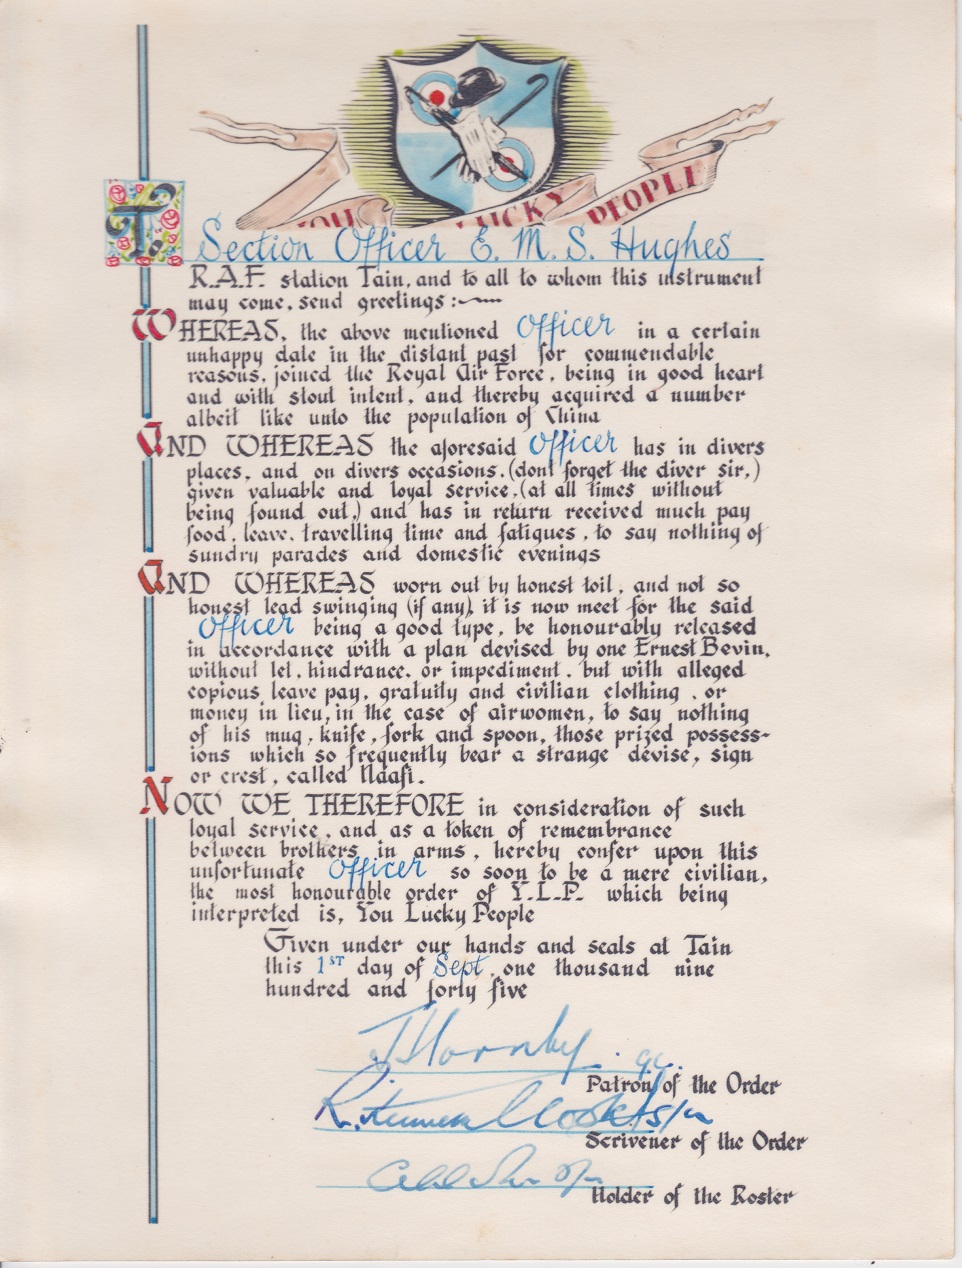 YOU LUCKY PEOPLE
To Section Officer E. M. S. Hughes
R.A.F. station Tain, and to all to whom this instrument
may come, send greetings :~
WHEREAS, the above mentioned Officer in a certain
unhappy date in the distant past for commendable
reasons, joined the Royal Air Force, being in good heart
and with stout intent, and thereby acquired a number
albeit like unto the population of China
AND WHEREAS the aforesaid Officer has in divers
places, and on divers occasions, (dont forget the diver sir,)
given valuable and loyal service, (at all times without
being found out,) and has in return received much pay
food, leave, travelling time and fatigues, to say nothing of
sundry parades and domestic evenings
AND WHEREAS worn out by honest toil, and not so
honest lead swinging (if any), it is now meet for the said
Officer being a good type, be honourably released
in accordance with a plan devised by one Ernest Bevin,
without let, hindrance, or impediment, but with alleged
copious leave pay, gratuity and civilian clothing, or
money in lieu, in the case of airwomen, to say nothing
of his mug, knife, fork and spoon, those prized possess-
ions which so frequently bear a strange devise, sign
or crest, called Naafi.
NOW WE THEREFORE in consideration of such
loyal service, and as a token of remembrance
between brothers in arms, hereby confer upon this
unfortunate Officer so soon to be a mere civilian,
the most honourable order of Y.L.P. which being
interpreted is, You Lucky People
Given under our hands and seals at Tain
this 1ST day of Sept, one thousand nine
hundred and forty five
J Hornby
Patron of the Order
Scrivener of the Order
Holder of the Roster